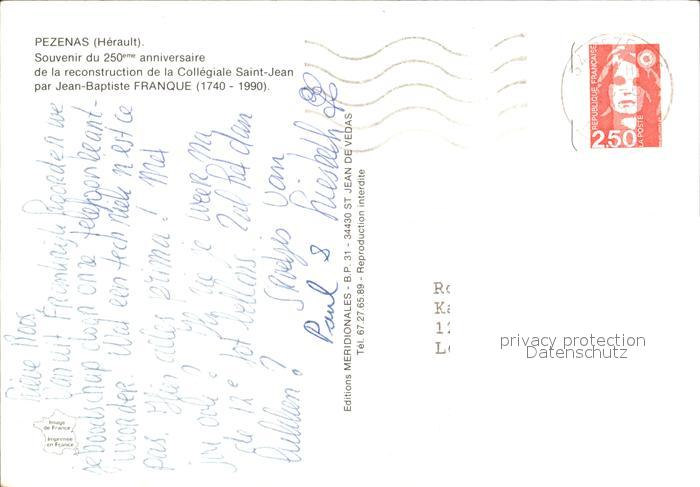 PEZENAS (Hérault).
Souvenir du 250ème anniversaire
de la reconstruction de la Collégiale Saint-Jean
par Jean-Baptiste FRANQUE (1740 - 1990).
Lieve Roos,
Van uit Frankrijk hoorden we
je boodschap door onze telefoonbeant-
woorder. Wat een techniek n'est ce
pas. Hier alles prima! Met
jou ook? je weer na
de 12e Tot zal het dan
lukken?
Groetjes van
Paul & Liesbeth
Editions MERIDIONALES - B.P. 31 - 34430 ST JEAN DE VEDAS
Tél. 67.27.65.89 - Reproduction interdite
Image
de France
Imprimée
en France
REPUBLIQUE FRANÇAISE
LA POSTE
2,50
Ro
Ka
12
Le
privacy protection
Datenschutz